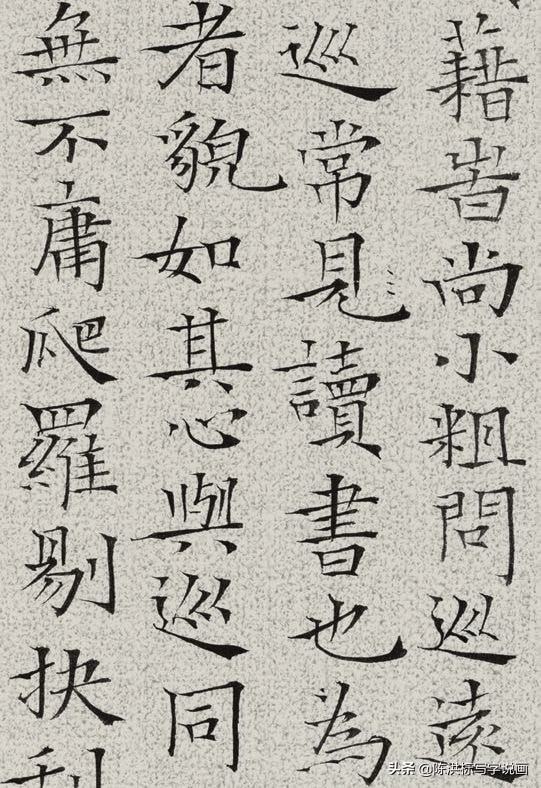 藉旹尚小粗問巡遠
巡常見讀書也為
者貌如其心與巡同
無不庸爬羅剔抉
头条 @陈洪标写字说画